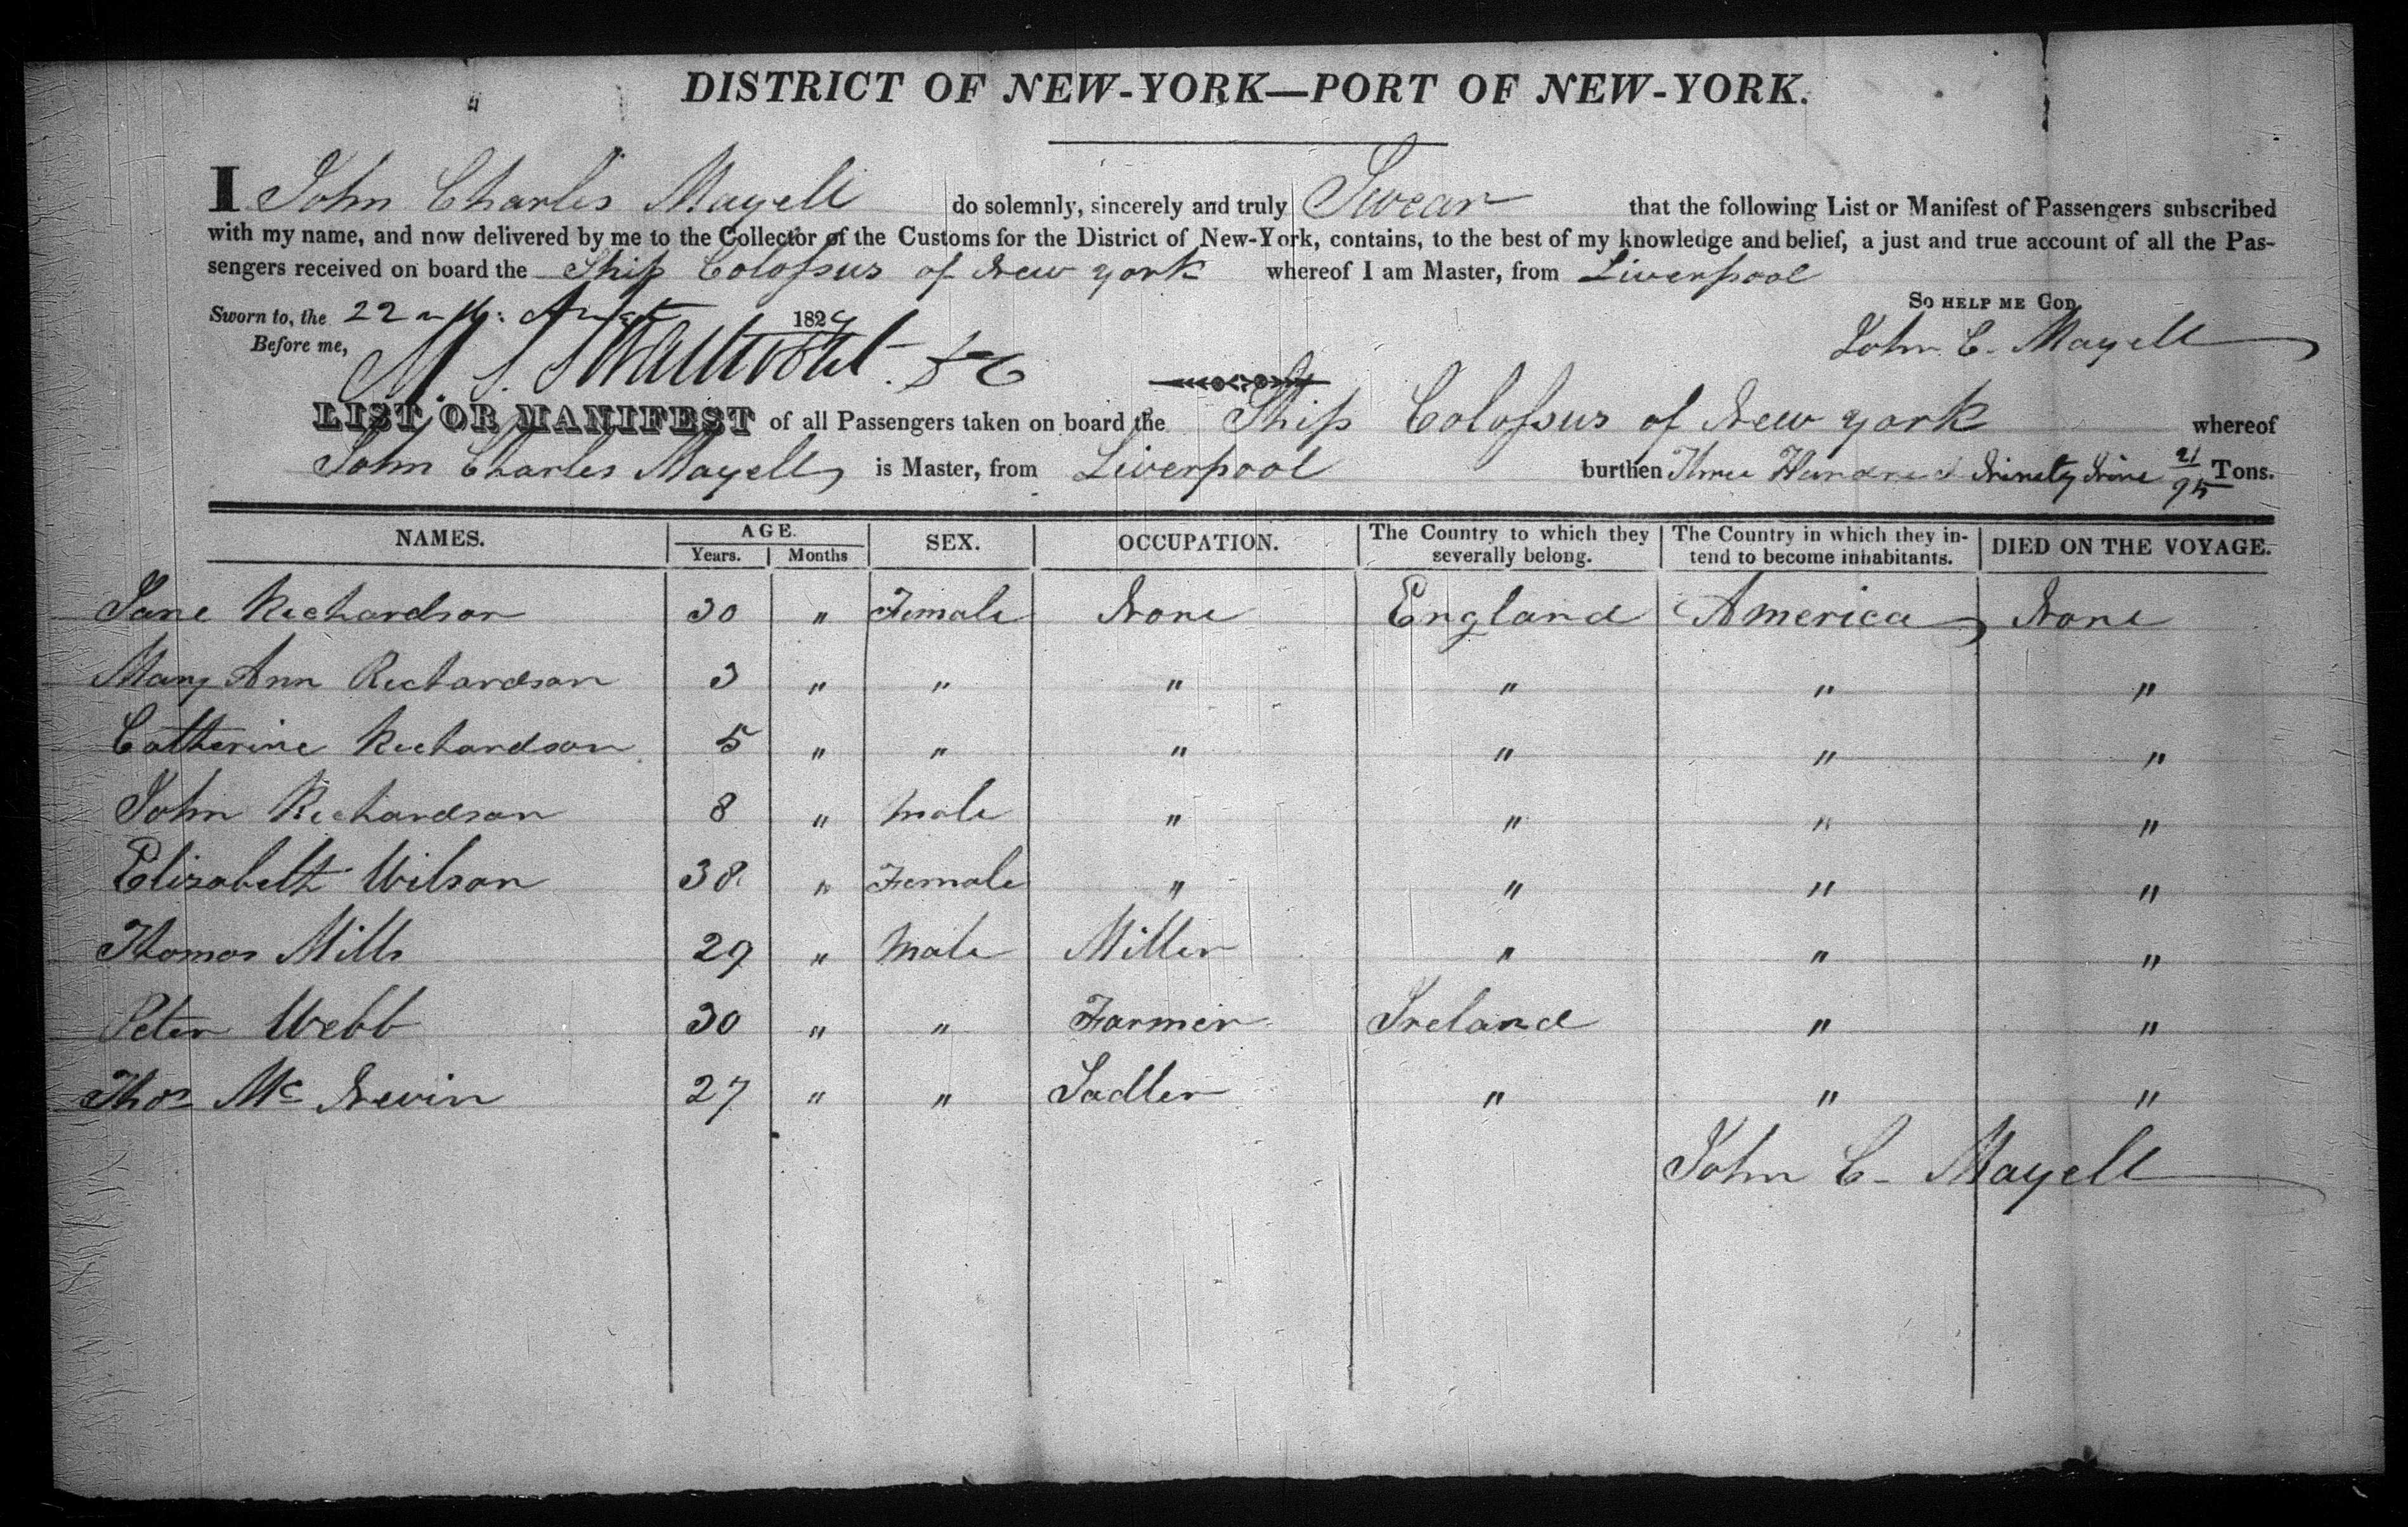 DISTRICT OF NEW-YORK—PORT OF NEW-YORK.
I John Charles Mayell do solemnly, sincerely and truly Swear that the following List or Manifest of Passengers subscribed
with my name, and now delivered by me to the Collector of the Customs for the District of New-York, contains, to the best of my knowledge and belief, a just and true account of all the Pas-
sengers received on board the Ship Colossus of New York whereof I am Master, from Liverpool
So HELP ME GOD.
Sworn to, the 22 182
Before me,
John C. Mayell
LIST OR MANIFEST of all Passengers taken on board the Ship Colossus of New York whereof
John Charles Mayell is Master, from Liverpool burthen Three Hundred Ninety Nine 21/95 Tons.
NAMES. AGE. SEX. OCCUPATION. The Country to which they severally belong. The Country in which they in-tend to become inhabitants. DIED ON THE VOYAGE.
Years. Months
Jane Richardson 30 " Female None England America None
Mary Ann Richardson 3 " " " " " "
Catherine Richardson 5 " " " " " "
John Richardson 8 " Male " " " "
Elizabeth Wilson 38 " Female " " " "
Thomas Mills 29 " Male Miller " " "
Peter Webb 30 " " Farmer Ireland " "
Thos Mc Nevin 27 " " Sadler " " "
John C. Mayell